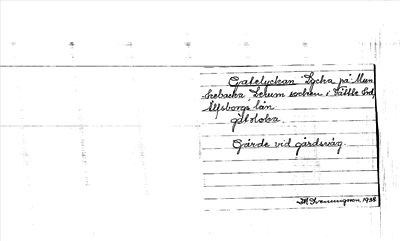 Gatelyckan Lycka på Mun
kebacka, Lerum socken i Vättle hd,
Älfsborgs län.
Gärde vid gårdsväg.
1938